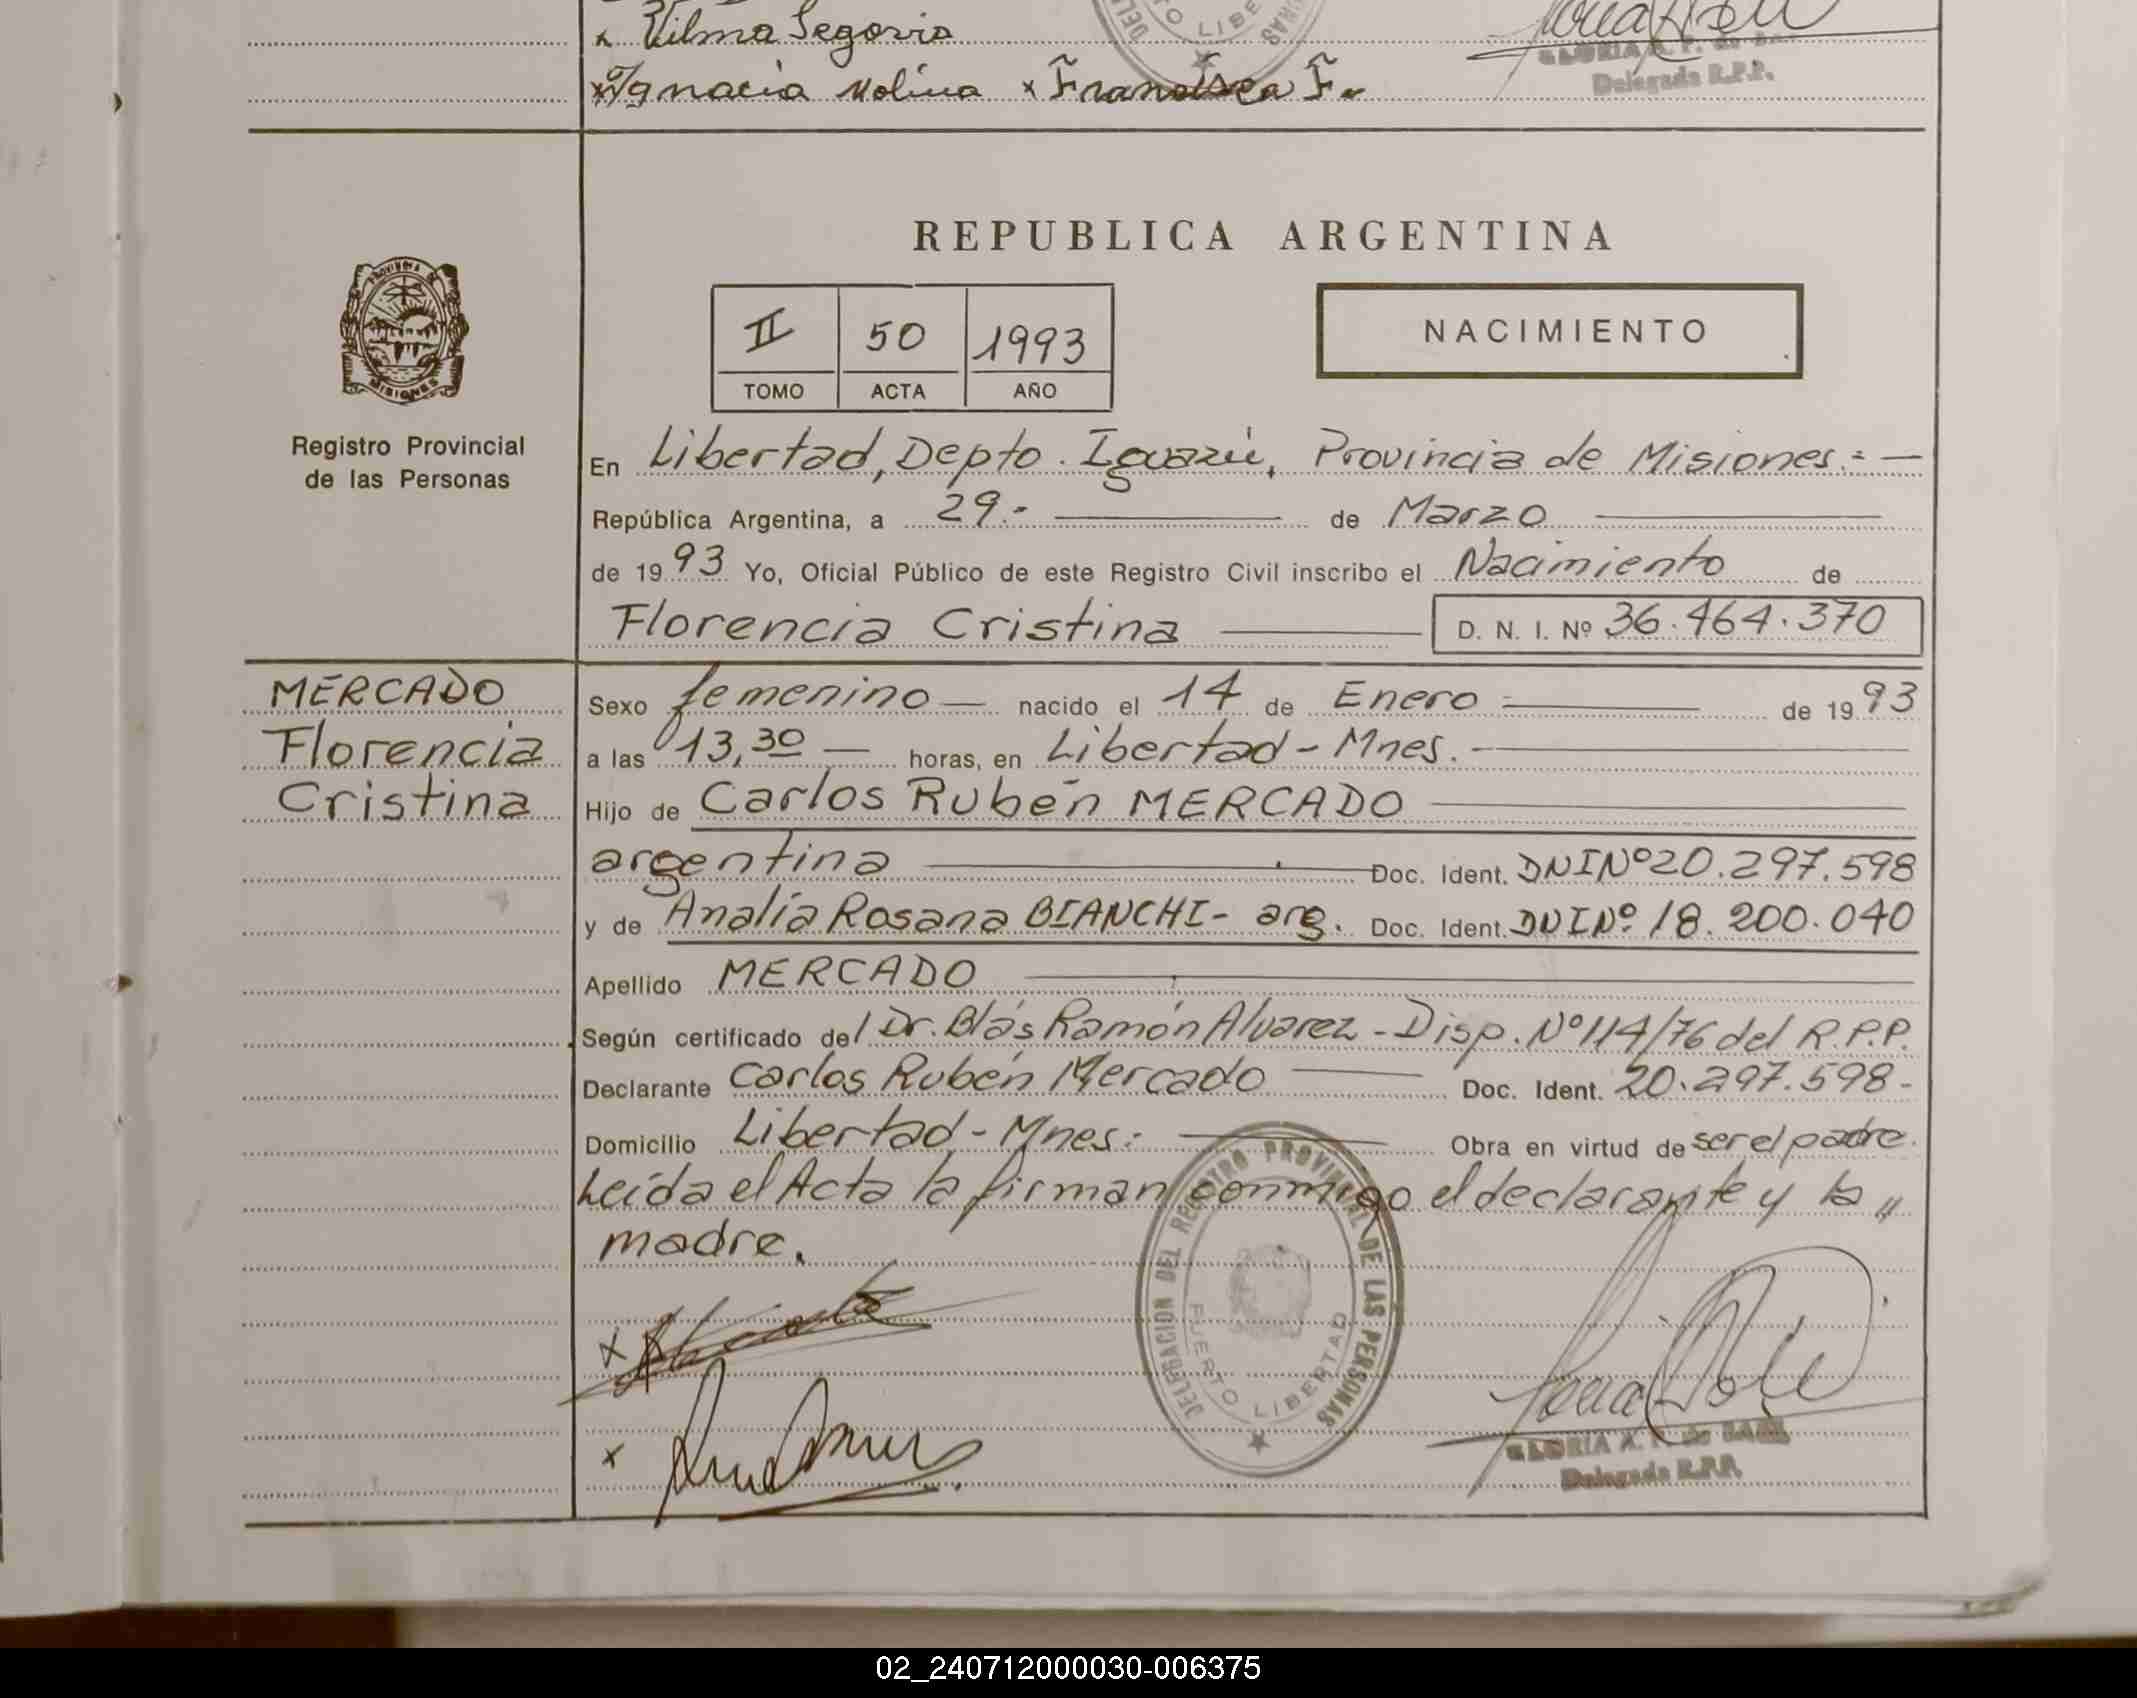 x Vilma Segovia
x Ignacia Molina x Francisca F.
Delegada R.P.P.
REPUBLICA ARGENTINA
PROVINCIA DE MISIONES
II 50 1993
TOMO ACTA AÑO
NACIMIENTO
Registro Provincial
de las Personas
En Libertad, Depto. Iguazú, Provincia de Misiones.=
República Argentina, a 29.- de Marzo
de 1993 Yo, Oficial Público de este Registro Civil inscribo el Nacimiento de
Florencia Cristina D. N. I. Nº 36.464.370
MERCADO
Florencia
Cristina
Sexo femenino nacido el 14 de Enero de 1993
a las 13,30 horas, en Libertad - Mnes.
Hijo de Carlos Rubén MERCADO
argentina Doc. Ident. DNI Nº 20.297.598
y de Analía Rosana BIANCHI - arg. Doc. Ident. DNI Nº 18.200.040
Apellido MERCADO
Según certificado del Dr. Blás Ramón Alvarez - Disp. Nº 114/76 del R.P.P.
Declarante Carlos Rubén Mercado Doc. Ident. 20.297.598-
Domicilio Libertad - Mnes: Obra en virtud de ser el padre.
Leída el Acta la firman conmigo el declarante y la "
madre.
x
x
DELEGACION DEL REGISTRO PROVINCIAL DE LAS PERSONAS
PUERTO LIBERTAD
GLORIA A. F. de
Delegada R.P.P.
02_240712000030-006375